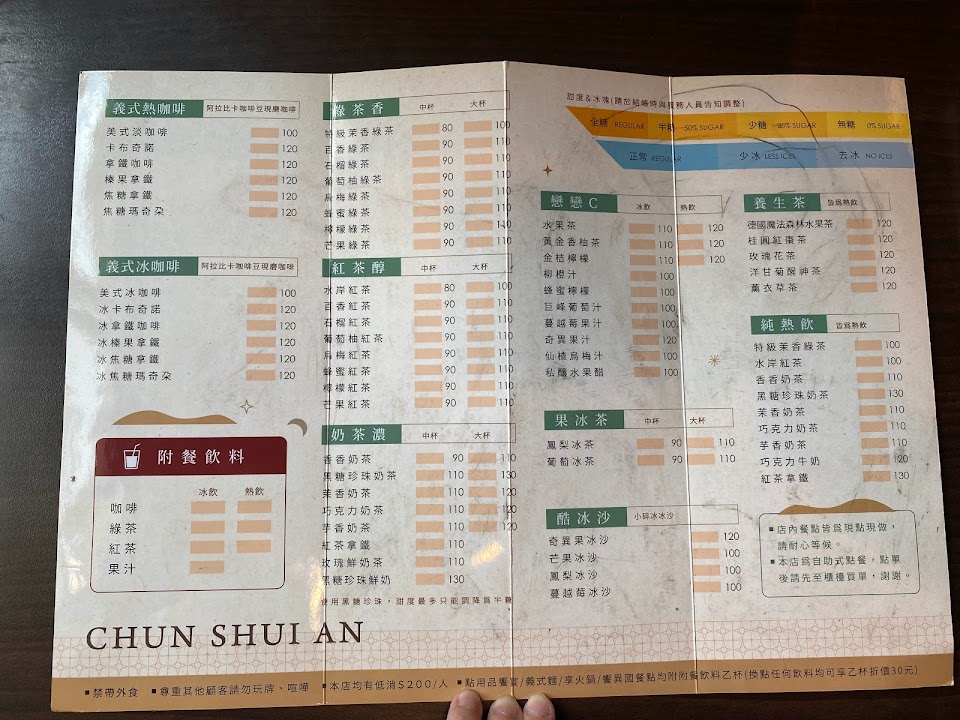 義式熱咖啡 阿拉比卡咖啡豆現磨咖啡
美式淡咖啡 100
卡布奇諾 120
拿鐵咖啡 120
榛果拿鐵 120
焦糖拿鐵 120
焦糖瑪奇朵 120
義式冰咖啡 阿拉比卡咖啡豆現磨咖啡
美式冰咖啡 100
冰卡布奇諾 120
冰拿鐵咖啡 120
冰榛果拿鐵 120
冰焦糖拿鐵 120
冰焦糖瑪奇朵 120
附餐飲料
冰飲 熱飲
咖啡
綠茶
紅茶
果汁
綠茶香 中杯 大杯
特級茉香綠茶 80 100
百香綠茶 90 110
石榴綠茶 90 110
葡萄柚綠茶 90 110
烏梅綠茶 90 110
蜂蜜綠茶 90 110
檸檬綠茶 90 110
芒果綠茶 90 110
紅茶醇 中杯 大杯
水岸紅茶 80 100
百香紅茶 90 110
石榴紅茶 90 110
葡萄柚紅茶 90 110
烏梅紅茶 90 110
蜂蜜紅茶 90 110
檸檬紅茶 90 110
芒果紅茶 90 110
奶茶濃 中杯 大杯
香香奶茶 90 110
黑糖珍珠奶茶 110 130
茉香奶茶 110 120
巧克力奶茶 110 120
芋香奶茶 110 120
紅茶拿鐵 110
玫瑰鮮奶茶 110
黑糖珍珠鮮奶 130
使用黑糖珍珠，甜度最多只能調降為半糖
甜度&冰塊(請於結帳時與服務人員告知調整)
全糖 REGULAR 半糖 50% SUGAR 少糖 25% SUGAR 無糖 0% SUGAR
正常 REGULAR 少冰 LESS ICES 去冰 NO ICES
戀戀C 冰飲 熱飲
水果茶 110 120
黃金香柚茶 110 120
金桔檸檬 110 120
柳橙汁 110
蜂蜜檸檬 100
巨峰葡萄汁 100
蔓越莓果汁 100
奇異果汁 120
仙楂烏梅汁 100
私釀水果醋 100
果冰茶 中杯 大杯
鳳梨冰茶 90 110
葡萄冰茶 90 110
酷冰沙 小碎冰冰沙
奇異果冰沙 120
芒果冰沙 100
鳳梨冰沙 100
蔓越莓冰沙 100
養生茶 皆為熱飲
德國魔法森林水果茶 120
桂圓紅棗茶 120
玫瑰花茶 120
洋甘菊醒神茶 120
薰衣草茶 120
純熱飲 皆為熱飲
特級茉香綠茶 100
水岸紅茶 100
香香奶茶 110
黑糖珍珠奶茶 130
茉香奶茶 110
巧克力奶茶 110
芋香奶茶 110
巧克力牛奶 120
紅茶拿鐵 130
▪店內餐點皆為現點現做，
請耐心等候。
▪本店為自助式點餐，點單
後請先至櫃檯買單，謝謝。
CHUN SHUI AN
▪禁帶外食 ▪尊重其他顧客請勿玩牌、喧嘩 ▪本店均有低消$200/人 ▪點用品饗宴/義式麵/享火鍋/饗異國餐點均附附餐飲料乙杯(換點任何飲料均可享乙杯折價30元)